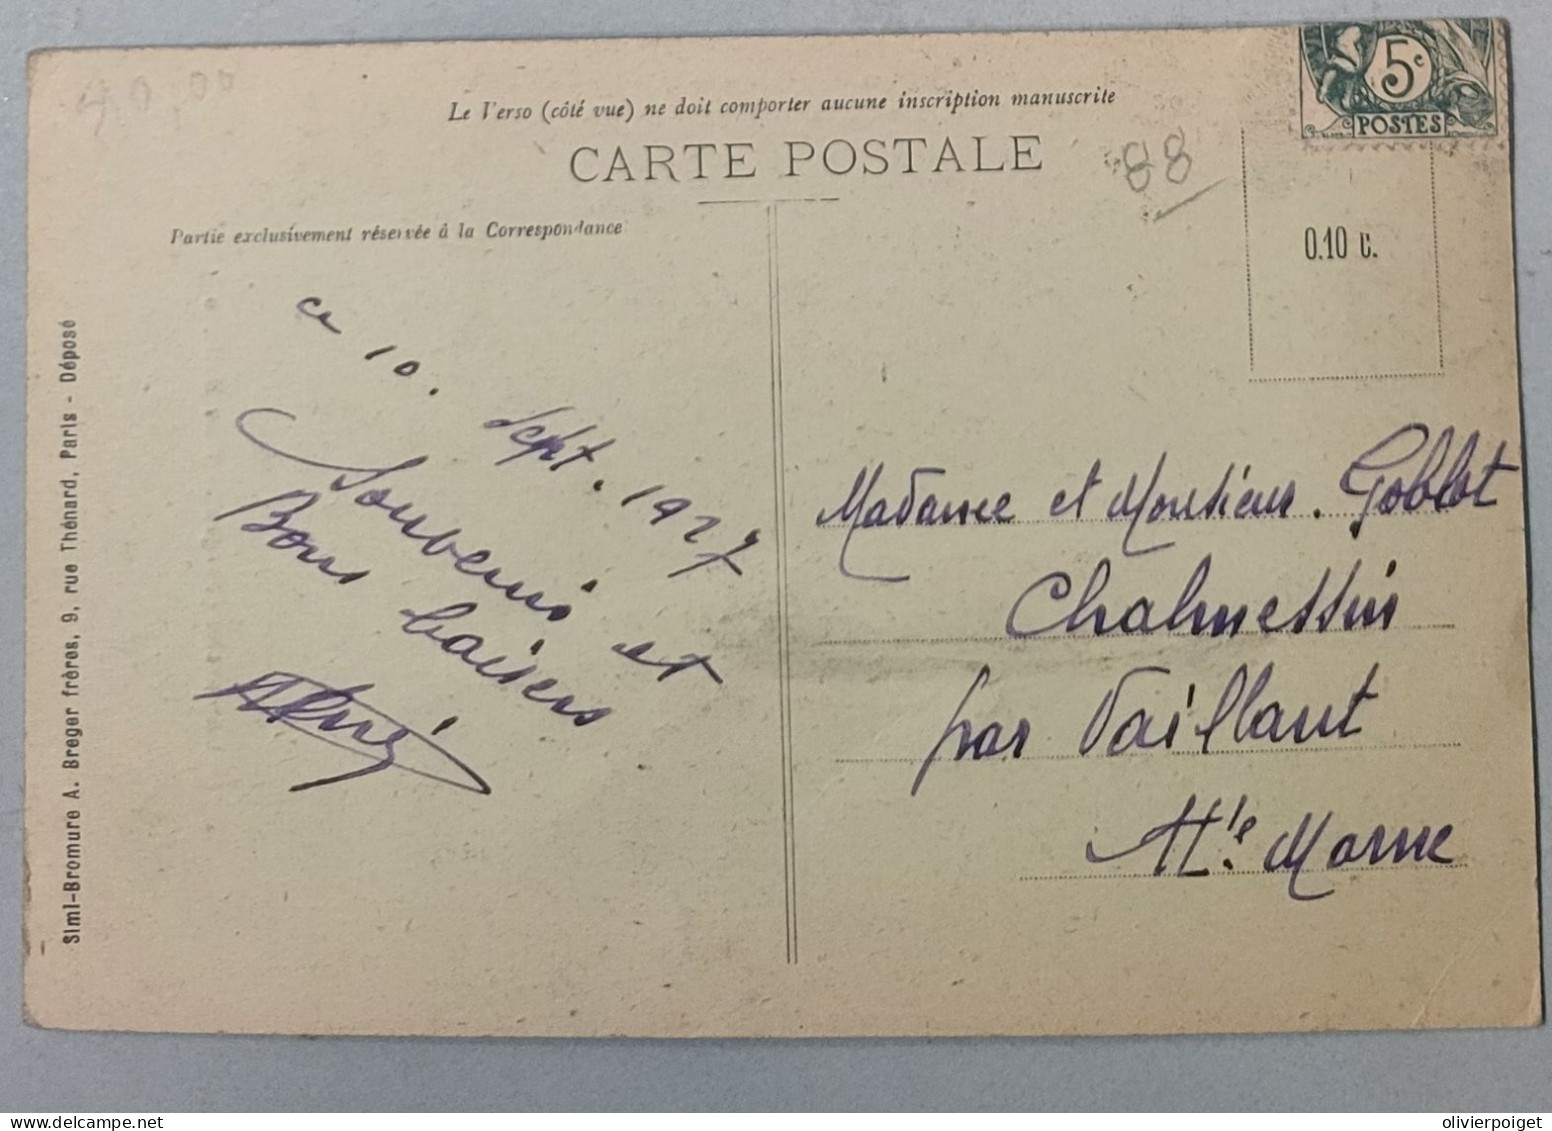 40,00
Le Verso (côté vue) ne doit comporter aucune inscription manuscrite
CARTE POSTALE
88
5c
POSTES
0.10 c.
Partie exclusivement réservée à la Correspondance
ce 10. Sept. 1927
Souvenirs et
Bons baisers
Madame et Monsieur. Goblot
Chalmessin
par Vaillant
Hte Marne
Simi-Bromure A. Breger frères, 9, rue Thénard, Paris - Déposé
olivierpoiget